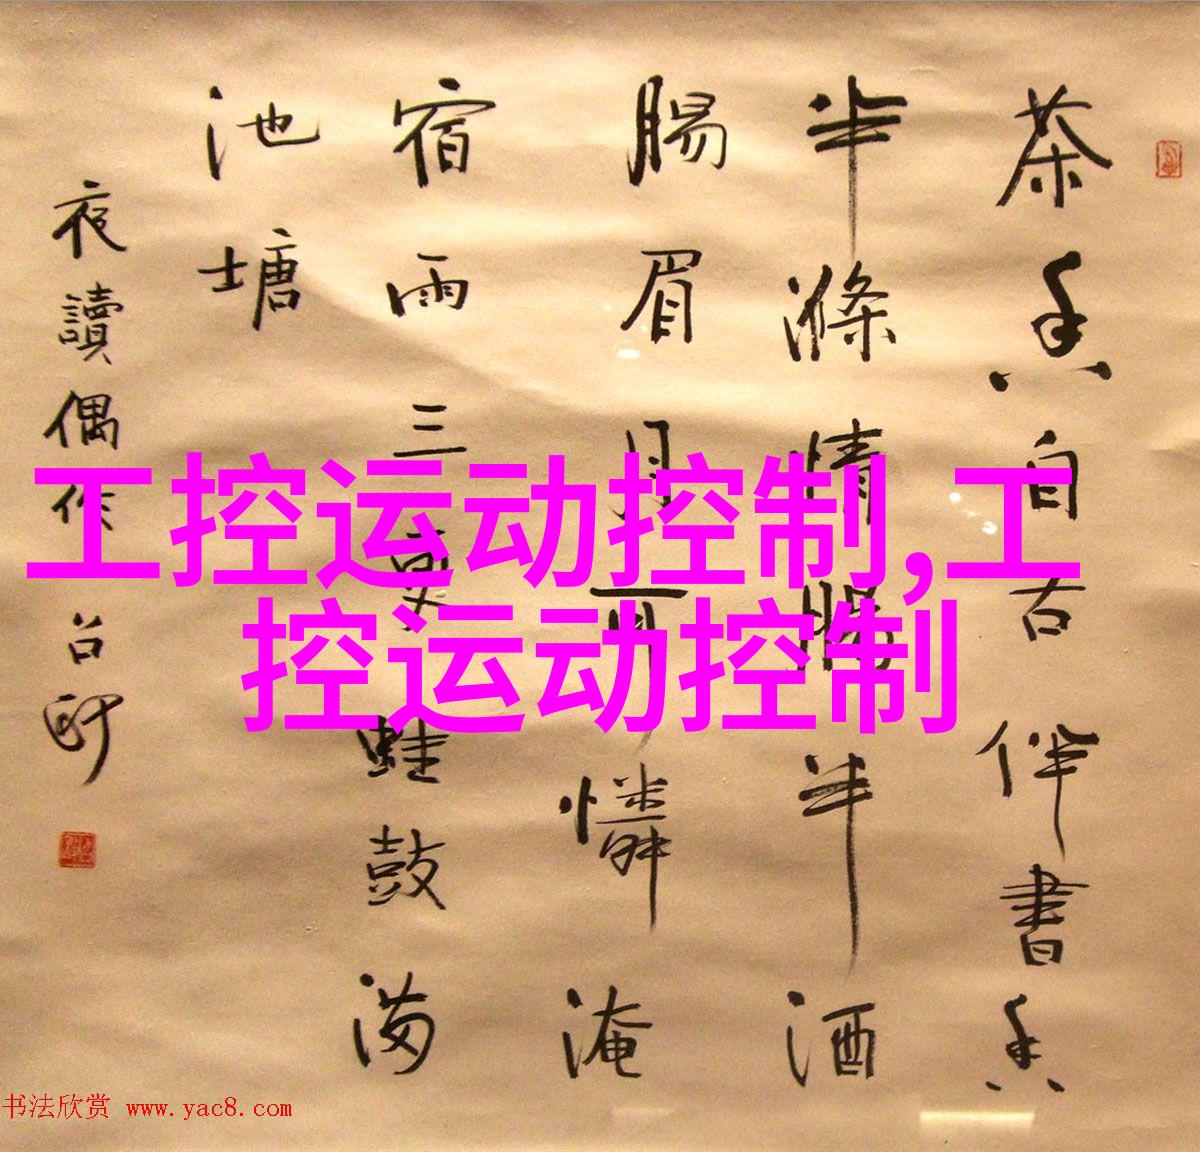 茶香自古伴書香
半滌情腸半酒
腸眉月可憐淹
宿雨三更蛙鼓满
池塘
夜讀偶作
工控运动控制,工
控运动控制
书法欣赏 www.yac8.com